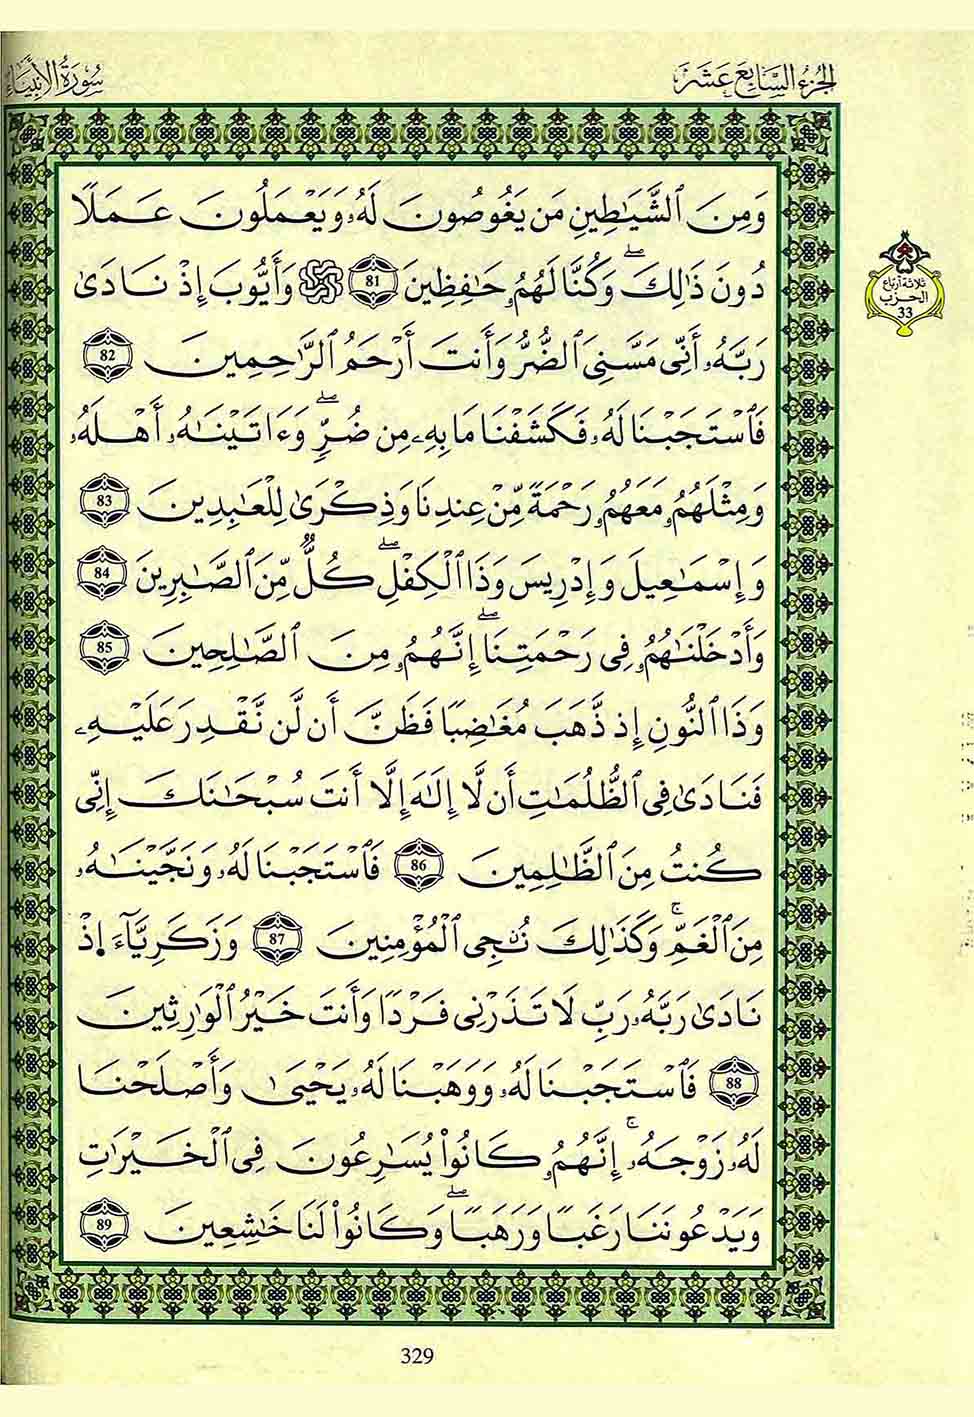 الجزء السابع عشر
سورة الأنبياء
وَمِنَ ٱلشَّيَٰطِينِ مَن يَغُوصُونَ لَهُۥ وَيَعْمَلُونَ عَمَلًا
دُونَ ذَٰلِكَۖ وَكُنَّا لَهُمُۥ حَٰفِظِينَ 81 وَأَيُّوبَ إِذْ نَادَىٰ
رَبَّهُۥ أَنِّى مَسَّنِىَ ٱلضُّرُّ وَأَنتَ أَرْحَمُ ٱلرَّٰحِمِينَ 82
فَٱسْتَجَبْنَا لَهُۥ فَكَشَفْنَا مَا بِهِۦ مِن ضُرٍّۖ وَءَاتَيْنَٰهُۥ أَهْلَهُۥ
وَمِثْلَهُمُۥ مَعَهُمُۥ رَحْمَةً مِّنْ عِندِنَا وَذِكْرَىٰ لِلْعَٰبِدِينَ 83
وَإِسْمَٰعِيلَ وَإِدْرِيسَ وَذَا ٱلْكِفْلِۖ كُلٌّ مِّنَ ٱلصَّٰبِرِينَ 84
وَأَدْخَلْنَٰهُمُۥ فِى رَحْمَتِنَاۖ إِنَّهُمُۥ مِنَ ٱلصَّٰلِحِينَ 85
وَذَا ٱلنُّونِ إِذ ذَّهَبَ مُغَٰضِبًا فَظَنَّ أَن لَّن نَّقْدِرَ عَلَيْهِۦ
فَنَادَىٰ فِى ٱلظُّلُمَٰتِ أَن لَّا إِلَٰهَ إِلَّا أَنتَ سُبْحَٰنَكَ إِنِّى
كُنتُ مِنَ ٱلظَّٰلِمِينَ 86 فَٱسْتَجَبْنَا لَهُۥ وَنَجَّيْنَٰهُۥ
مِنَ ٱلْغَمِّۚ وَكَذَٰلِكَ نُۨجِى ٱلْمُؤْمِنِينَ 87 وَزَكَرِيَّآءَ اِ۬ذْ
نَادَىٰ رَبَّهُۥ رَبِّ لَا تَذَرْنِى فَرْدًا وَأَنتَ خَيْرُ ٱلْوَٰرِثِينَ
88 فَٱسْتَجَبْنَا لَهُۥ وَوَهَبْنَا لَهُۥ يَحْيَىٰ وَأَصْلَحْنَا
لَهُۥ زَوْجَهُۥۚ إِنَّهُمُۥ كَانُوا۟ يُسَٰرِعُونَ فِى ٱلْخَيْرَٰتِ
وَيَدْعُونَنَا رَغَبًا وَرَهَبًاۖ وَكَانُوا۟ لَنَا خَٰشِعِينَ 89
ثلاثة أرباع
الحزب
33
329